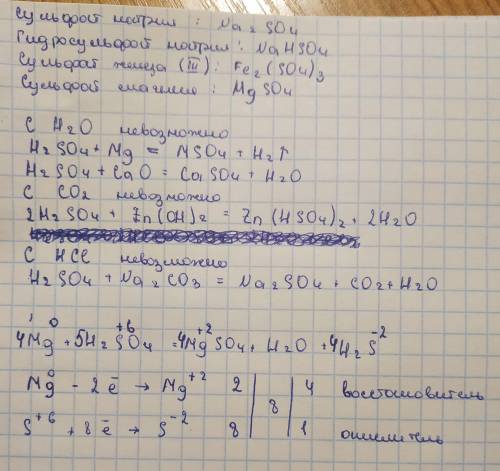 Сульфат натрия : Na2SO4
Гидросульфат натрия : NaHSO4
Сульфат железа (III) : Fe2(SO4)3
Сульфат магния : MgSO4
С H2O невозможно
H2SO4 + Mg = MSO4 + H2↑
H2SO4 + CaO = CaSO4 + H2O
С CO2 невозможно
2H2SO4 + Zn(OH)2 = Zn(HSO4)2 + 2H2O
С HCl невозможно
H2SO4 + Na2CO3 = Na2SO4 + CO2 + H2O
4Mg0 + 5H2S+6O4 = 4Mg+2SO4 + H2O + 4H2S-2
Mg0 - 2ē → Mg+2 2 | 8 | 4 восстановитель
S+6 + 8ē → S-2 8 | | 1 окислитель